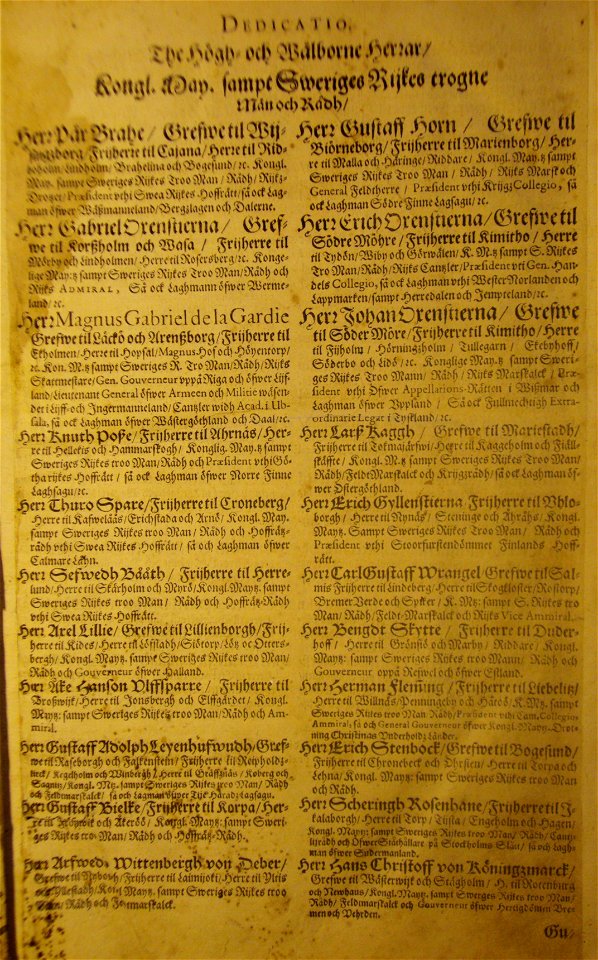 DEDICATIO.
The Högh- och Wälborne Herrar/
Kongl. May. sampt Sweriges Rijkes trogne
Män och Rådh/
Herr Pär Brahe / Grefwe til Wij-
singzborg / Frijherre til Cajana / Herre til Rid-
boholm / Lindholm / Brahelina och Bogesund / ꝛc. Kongl.
May. sampt Sweriges Rijkes Troo Man / Rådh / Rijkz-
Drotzet / Præsident vthi Swea Rijkes Hoffrätt / så ock Lag-
man öfwer Wäßmanneland / Bergzlagen och Dalerne.
Herr Gabriel Oxenstierna / Gref-
we til Korßholm och Wasa / Frijherre til
Mörby och Lindholmen / Herre til Rosersberg / ꝛc. Konge-
lige May:tz sampt Sweriges Rijkes Troo Man / Rådh och
Rijks ADMIRAL, Så ock Laghmann öfwer Werme-
land / ꝛc.
Herr Magnus Gabriel de la Gardie
Grefwe til Läckö och Arenßborg / Frijherre til
Ekholmen / Herre til Hapsal / Magnus Hof och Höyentorp /
ꝛc. Kon. M.tz sampt Sweriges R. Tro Man / Rådh / Rijks
Skattmestare / Gen. Gouverneur oppå Riga och öfwer Lijf-
land / Lieutenant General öfwer Armeen och Militie wäsen-
det i Lijff- och Ingermanneland / Cantzler widh Acad. i Ub-
sala, så ock Laghman öfwer Wästergöthland och Daal / ꝛc.
Herr Knuth Posse / Frijherre til Ahrnäs / Her-
re til Hellekis och Hammarskogh / Konglig. May.tz sampt
Sweriges Rijkes troo Man / Rådh och Præsident vthi Gö-
tha rijkes Hoffrätt / så ock Laghman öfwer Norre Finne
Laghsagu / ꝛc.
Herr Thuro Sparre / Frijherre til Croneberg /
Herre til Kafweläås / Erichstada och Arnö / Kongl. May.
sampt Sweriges Rijkes troo Man / Rådh och Hoffrätz-
rådh vthi Swea Rijkes Hoffrätt / så och Laghman öfwer
Calmare Lähn.
Herr Sefwedh Bååth / Frijherre til Herre-
lund / Herre til Stärholm och Morö / Kongl. May:tz. sampt
Sweriges Rijkes troo Man / Rådh och Hoffrätz-Rådh
vthi Swea Rijkes Hoffrätt.
Herr Axel Lillie / Grefwe til Lillienborgh / Frij-
herre til Kides / Herre til Löfstadh / Siötorp / Löß oc Otters-
bergh / Kongl. Mayt: sampt Sweriges Rijkes troo Man /
Rådh och Gouverneur öfwer Halland.
Herr Åke Hanson Ulfsparre / Frijherre til
Broßwijk / Herre til Jonsbergh och Elffgärdet / Kongl.
May:tz: sampt Sweriges Rijkes troo Man / Rådh och Am-
miral.
Herr Gustaff Adolph Leyenhufwudh / Gref-
we til Raseborgh och Falkenstein / Frijherre til Reipholdz-
kirck / Kegelholm och Winbergh / Herre til Gräffsnäs / Koberg och
Sagnitz / Kongl. May. sampt Sweriges Rijkes troo Man / Rådh
och Feldtmarskalck / så och Lagman öfwer Tije Härad z Lagsagu.
Herr Gustaff Bielke / Frijherre til Korpa / Her-
re til och Åkeröö / Kongl. May:tz sampt Sweri-
ges Rijkes troo Man / Rådh och Hoffrätz-Rådh.
Herr Arfwed Wittenbergh von Deber /
Grefwe til Nyborgh / Frijherre til Laimijoki / Herre til
Kongl. May:tz sampt Sweriges Rijkes troo
Man / Rådh och Feltmarskalck.
Herr Gustaff Horn / Grefwe til
Biörneborg / Frijherre til Marienborg / Her-
re til Malla och Häringe / Riddare / Kongl. May:tz sampt
Sweriges Rijkes Troo Man / Rådh / Rijks Marsk och
General Feldtherre / Præsident vthi Krijgz Collegio, så
ock Laghman Södre Finne Laghsagu / ꝛc.
Herr Erich Oxenstierna / Grefwe til
Södre Möhre / Frijherre til Kimitho / Herre
til Tydön / Wiby och Görwälen / K. M.tz sampt S. Rijkes
Tro Man / Rådh / Rijks Cantzler / Præsident vti Gen. Han-
dels Collegio, så ock Laghman vthi Wester Norlanden och
Lappmarken / sampt Herredalen och Jempteland / ꝛc.
Herr Johan Oxenstierna / Grefwe
til Söder Möre / Frijherre til Kimitho / Herre
til Fijholm / Hörningzholm / Tullegarn / Ekebyhoff /
Söderbo och Lidö / ꝛc. Konglige May:tz sampt Sweri-
ges Rijkes Troo Mann / Rådh / Rijks Marskalck / Præ-
sident vthi Öfwer Appellations-Rätten i Wißmar och
Laghman öfwer Uppland / Så ock Fullmechtigh Extra-
ordinarie Legat i Tyskland / ꝛc.
Herr Larß Kaggh / Grefwe til Mariestadh /
Frijherre til Tolmajärfwi / Herre til Kaggeholm och Fiäll-
skäffte / Kongl. M.tz sampt Sweriges Rijkes Troo Man /
Rådh / Feldt Marskalck och Krijgzrådh / så ock Laghman öf-
wer Östergöthland.
Herr Erich Gyllenstierna Frijherre til Uhlo-
borgh / Herre til Nynäs / Steninge och Ährähs / Kongl.
May:tz. Sampt Sweriges Rijkes Troo Man / Rådh och
Præsident vthi Stoorfurstendömmet Finlands Hoff-
rätt.
Herr Carl Gustaff Wrangel / Grefwe til Sal-
mis Frijherre til Lindeberg / Herre til Skogkloster / Rostorp /
Bremer Verde och Spker / K. M:tz: sampt S. Rijkes tro
Man / Rådh / Feldt-Marskalck och Rijks Vice Ammiral.
Herr Bengdt Skytte / Frijherre til Duder-
hoff / Herre til Grönsjö och Marby / Riddare / Kongl.
May:tz: sampt Sweriges Rijkes troo Mann / Rådh och
Gouverneur oppå Refwel och öfwer Estland.
Herr Herman Fleming / Frijherre til Liebelitz /
Herre til Willnäs / Penningeby och Haröö. K. M.tz sampt
Sweriges Rijkes troo Man Rådh / Præsident vthi Cam. Collegio,
Ammiral / så och General Gouverneur öfwer Kongl. May:tz Drot-
ning Christinas Underhold z Länder.
Herr Erich Stenbock / Grefwe til Bogesund /
Frijherre til Chronebeck och Öhrsten / Herre til Torpa och
Lehna / Kongl. May:tz: sampt Sweriges Rijkes troo Man
och Rådh.
Herr Scheringh Rosenhåne / Frijherre til J-
kalaborgh / Herre til Torp / Tijsta / Engeholm och Hagen /
Kongl. Mayt: sampt Sweriges Rijkes troo Man / Rådh / Cantz-
lijrådh och Öfwer Ståthållare på Stockholms Slätt / så och lagh-
man öfwer Södermanland.
Herr Hans Christoff von Köningzmarck /
Grefwe til Wästerwijk och Stägholm / H. til Rotenburg
och Newhaus / Kongl. May:tz sampt Swerges Rijkes troo Man /
Rådh / Feldtmarskalck och Gouverneur öfwer Hertigdömen Bre-
men och Vehrden.
Gu/